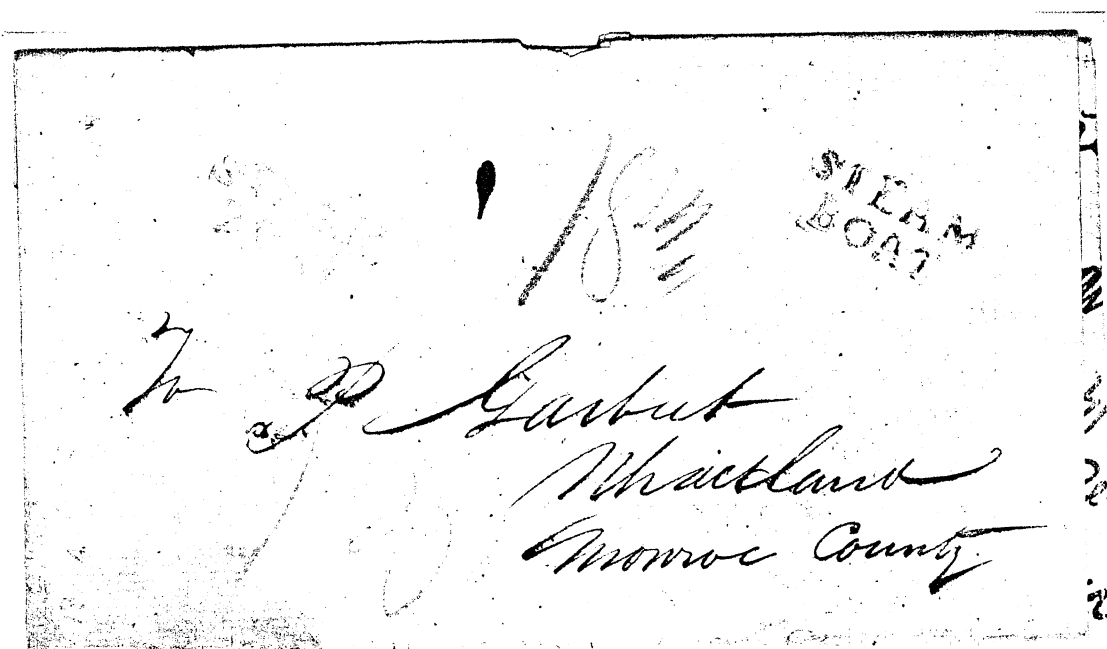 18 3/4
STEAM
BOAT
To P Garbut
Whaeatland
Monroe County